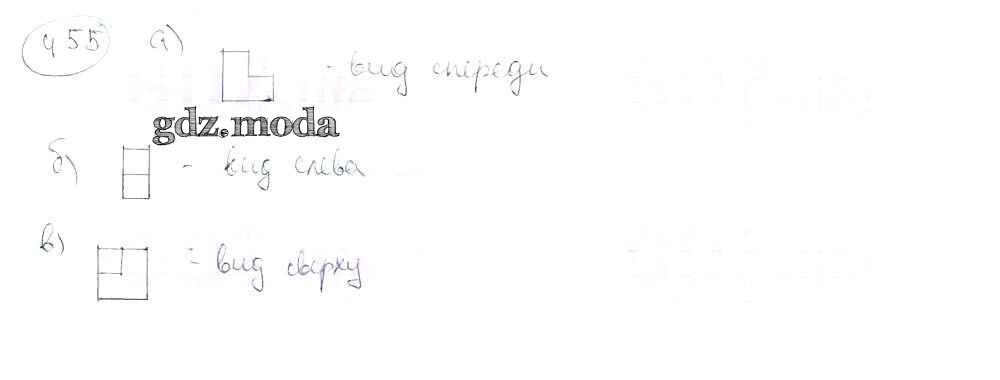 455 а) - вид спереди
gdz.moda
б) - вид слева
в) - вид сверху